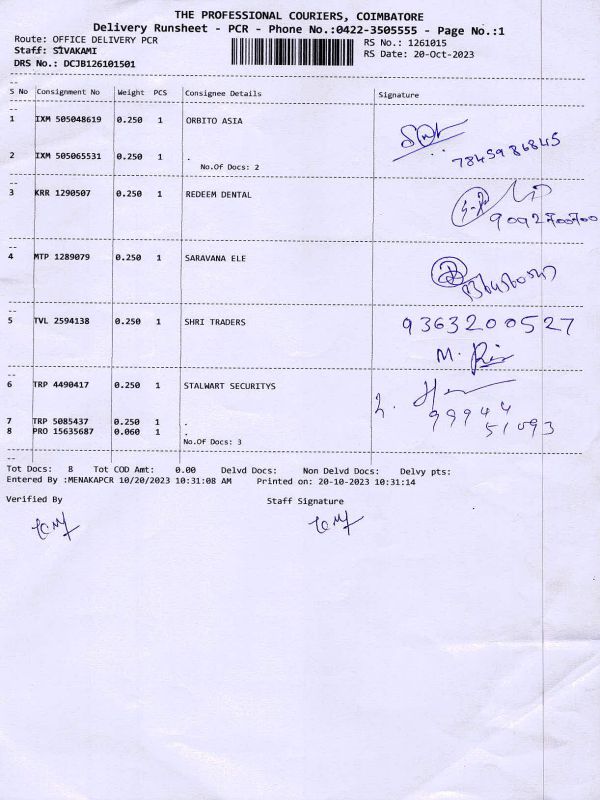 THE PROFESSIONAL COURIERS, COIMBATORE
Delivery Runsheet - PCR - Phone No.:0422-3505555 - Page No.:1
Route: OFFICE DELIVERY PCR RS No.: 1261015
Staff: SIVAKAMI RS Date: 20-Oct-2023
DRS No.: DCJB126101501
--
S No Consignment No Weight PCS Consignee Details Signature
--
1 IXM 505048619 0.250 1 ORBITO ASIA
7845986845
2 IXM 505065531 0.250 1 .
No.Of Docs: 2
--
3 KRR 1290507 0.250 1 REDEEM DENTAL
--
4 MTP 1289079 0.250 1 SARAVANA ELE
--
5 TVL 2594138 0.250 1 SHRI TRADERS 9363200527
M.
--
6 TRP 4490417 0.250 1 STALWART SECURITYS
99944
51093
7 TRP 5085437 0.250 1 .
8 PRO 15635687 0.060 1 .
No.Of Docs: 3
--
Tot Docs: 8 Tot COD Amt: 0.00 Delvd Docs: Non Delvd Docs: Delvy pts:
Entered By :MENAKAPCR 10/20/2023 10:31:08 AM Printed on: 20-10-2023 10:31:14
Verified By Staff Signature